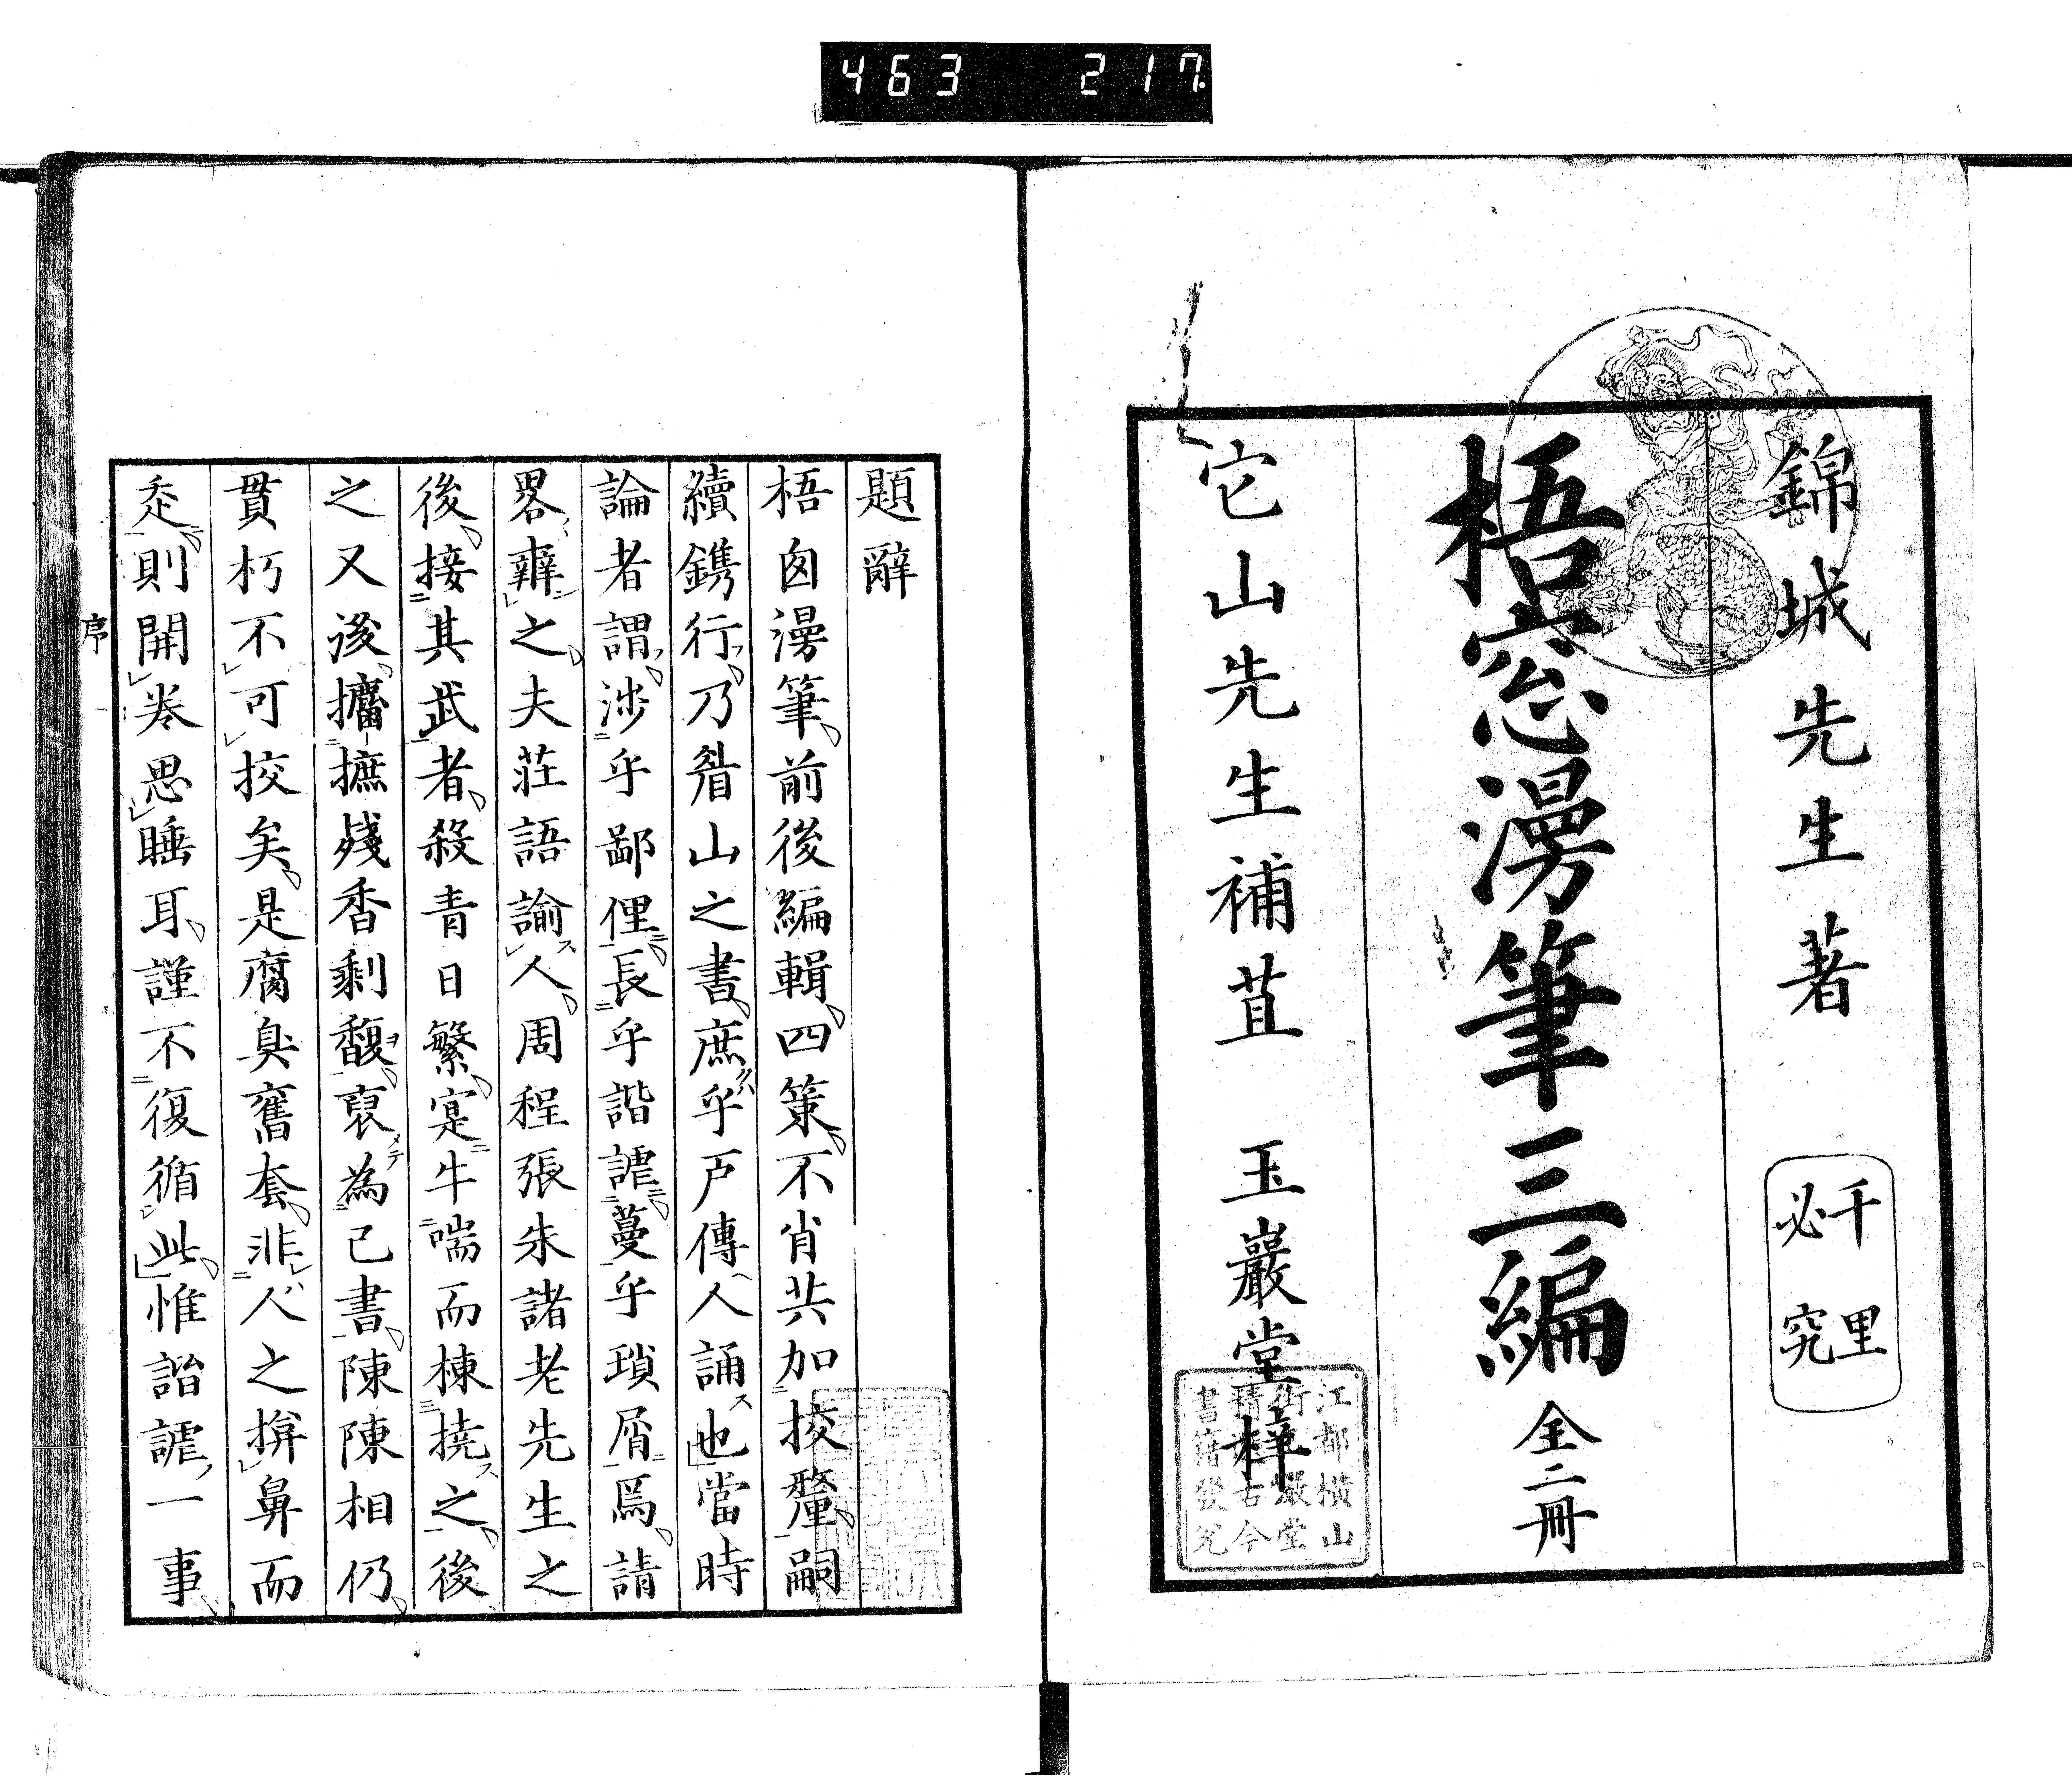 463 217
錦城先生著
千里必究
梧窓漫筆三編 全二冊
它山先生補苴 玉巖堂梓
江都橫山
街玉巖堂
精選古今
書籍發兌
題辭
梧囪漫筆前後編輯四策不肖共加挍釐嗣
續鐫行乃眉山之書庶乎戸傳人誦也當時
論者謂涉乎鄙俚長乎諧謔蔓乎瑣屑焉請
畧辨之夫莊語諭人周程張朱諸老先生之
後接其武者殺青日繁寔牛喘而棟撓之後
之又後攟摭殘香剩馥裒為己書陳陳相仍
貫朽不可挍矣是腐臭舊套非人之揜鼻而
走則開卷思睡耳謹不復循此惟諧謔一事
序